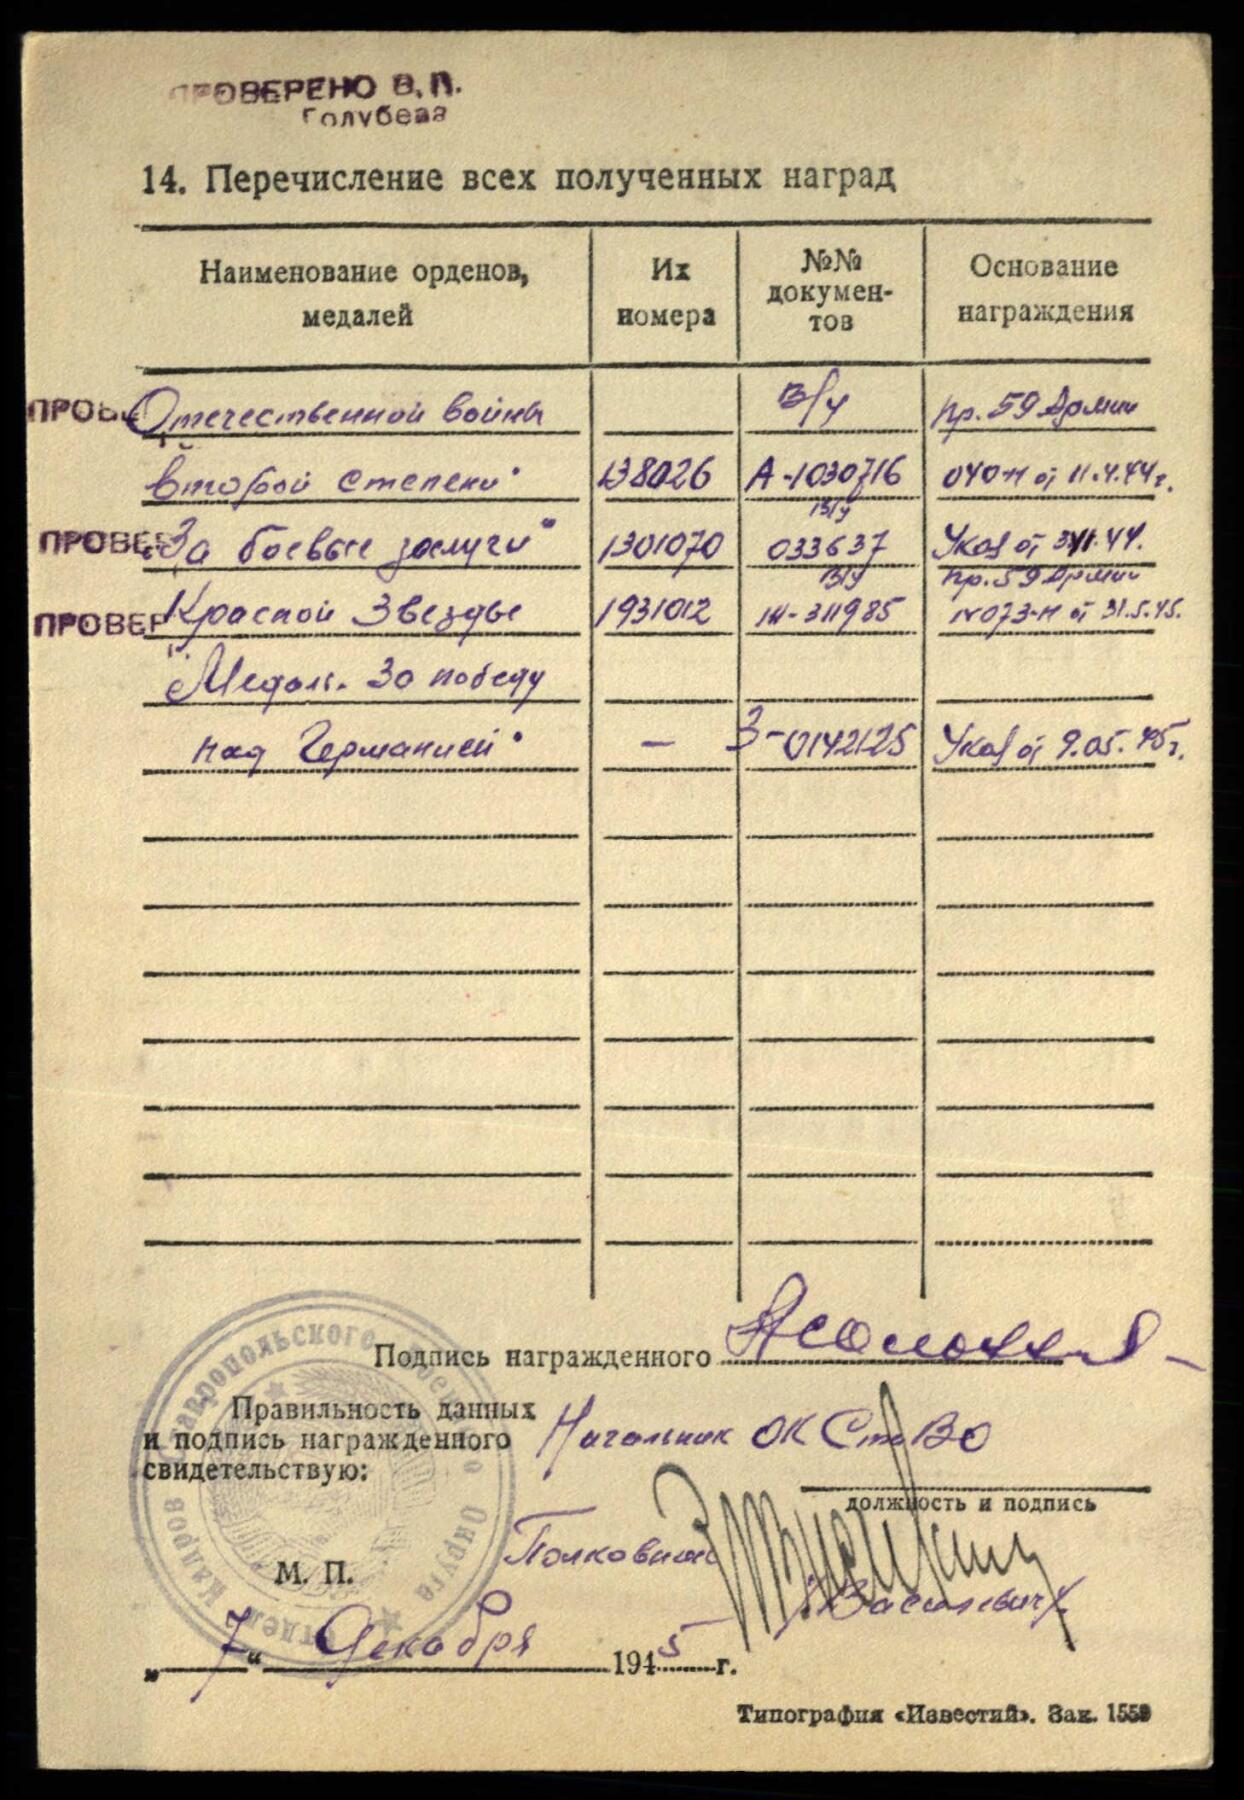 ПРОВЕРЕНО В. П.
Голубева
14. Перечисление всех полученных наград
Наименование орденов, медалей
Их номера
№№ докумен-
тов
Основание награждения
ПРОВЕ Отечественной войны в/у пр. 59 Армии
второй степени 138026 А-1030716 040-н от 11.4.44г.
ПРОВЕР „За боевые заслуги" 1301070 в/у 033637 Указ от 3.11.44.
ПРОВЕР Красной Звезды 1931012 в/у 311985 пр. 59 Армии №073-н от 31.5.45.
"Медаль. За победу
над Германией" — З-0142125 Указ от 9.05.45г.
Подпись награжденного
Правильность данных
и подпись награжденного
свидетельствую:
Начальник ОК СтВО
должность и подпись
Полковник
/Василевич/
М. П.
Отдел Кадров Ставропольского Военного Округа
„ 7 " Декабря 1945 г.
Типография «Известий». Зак. 1559